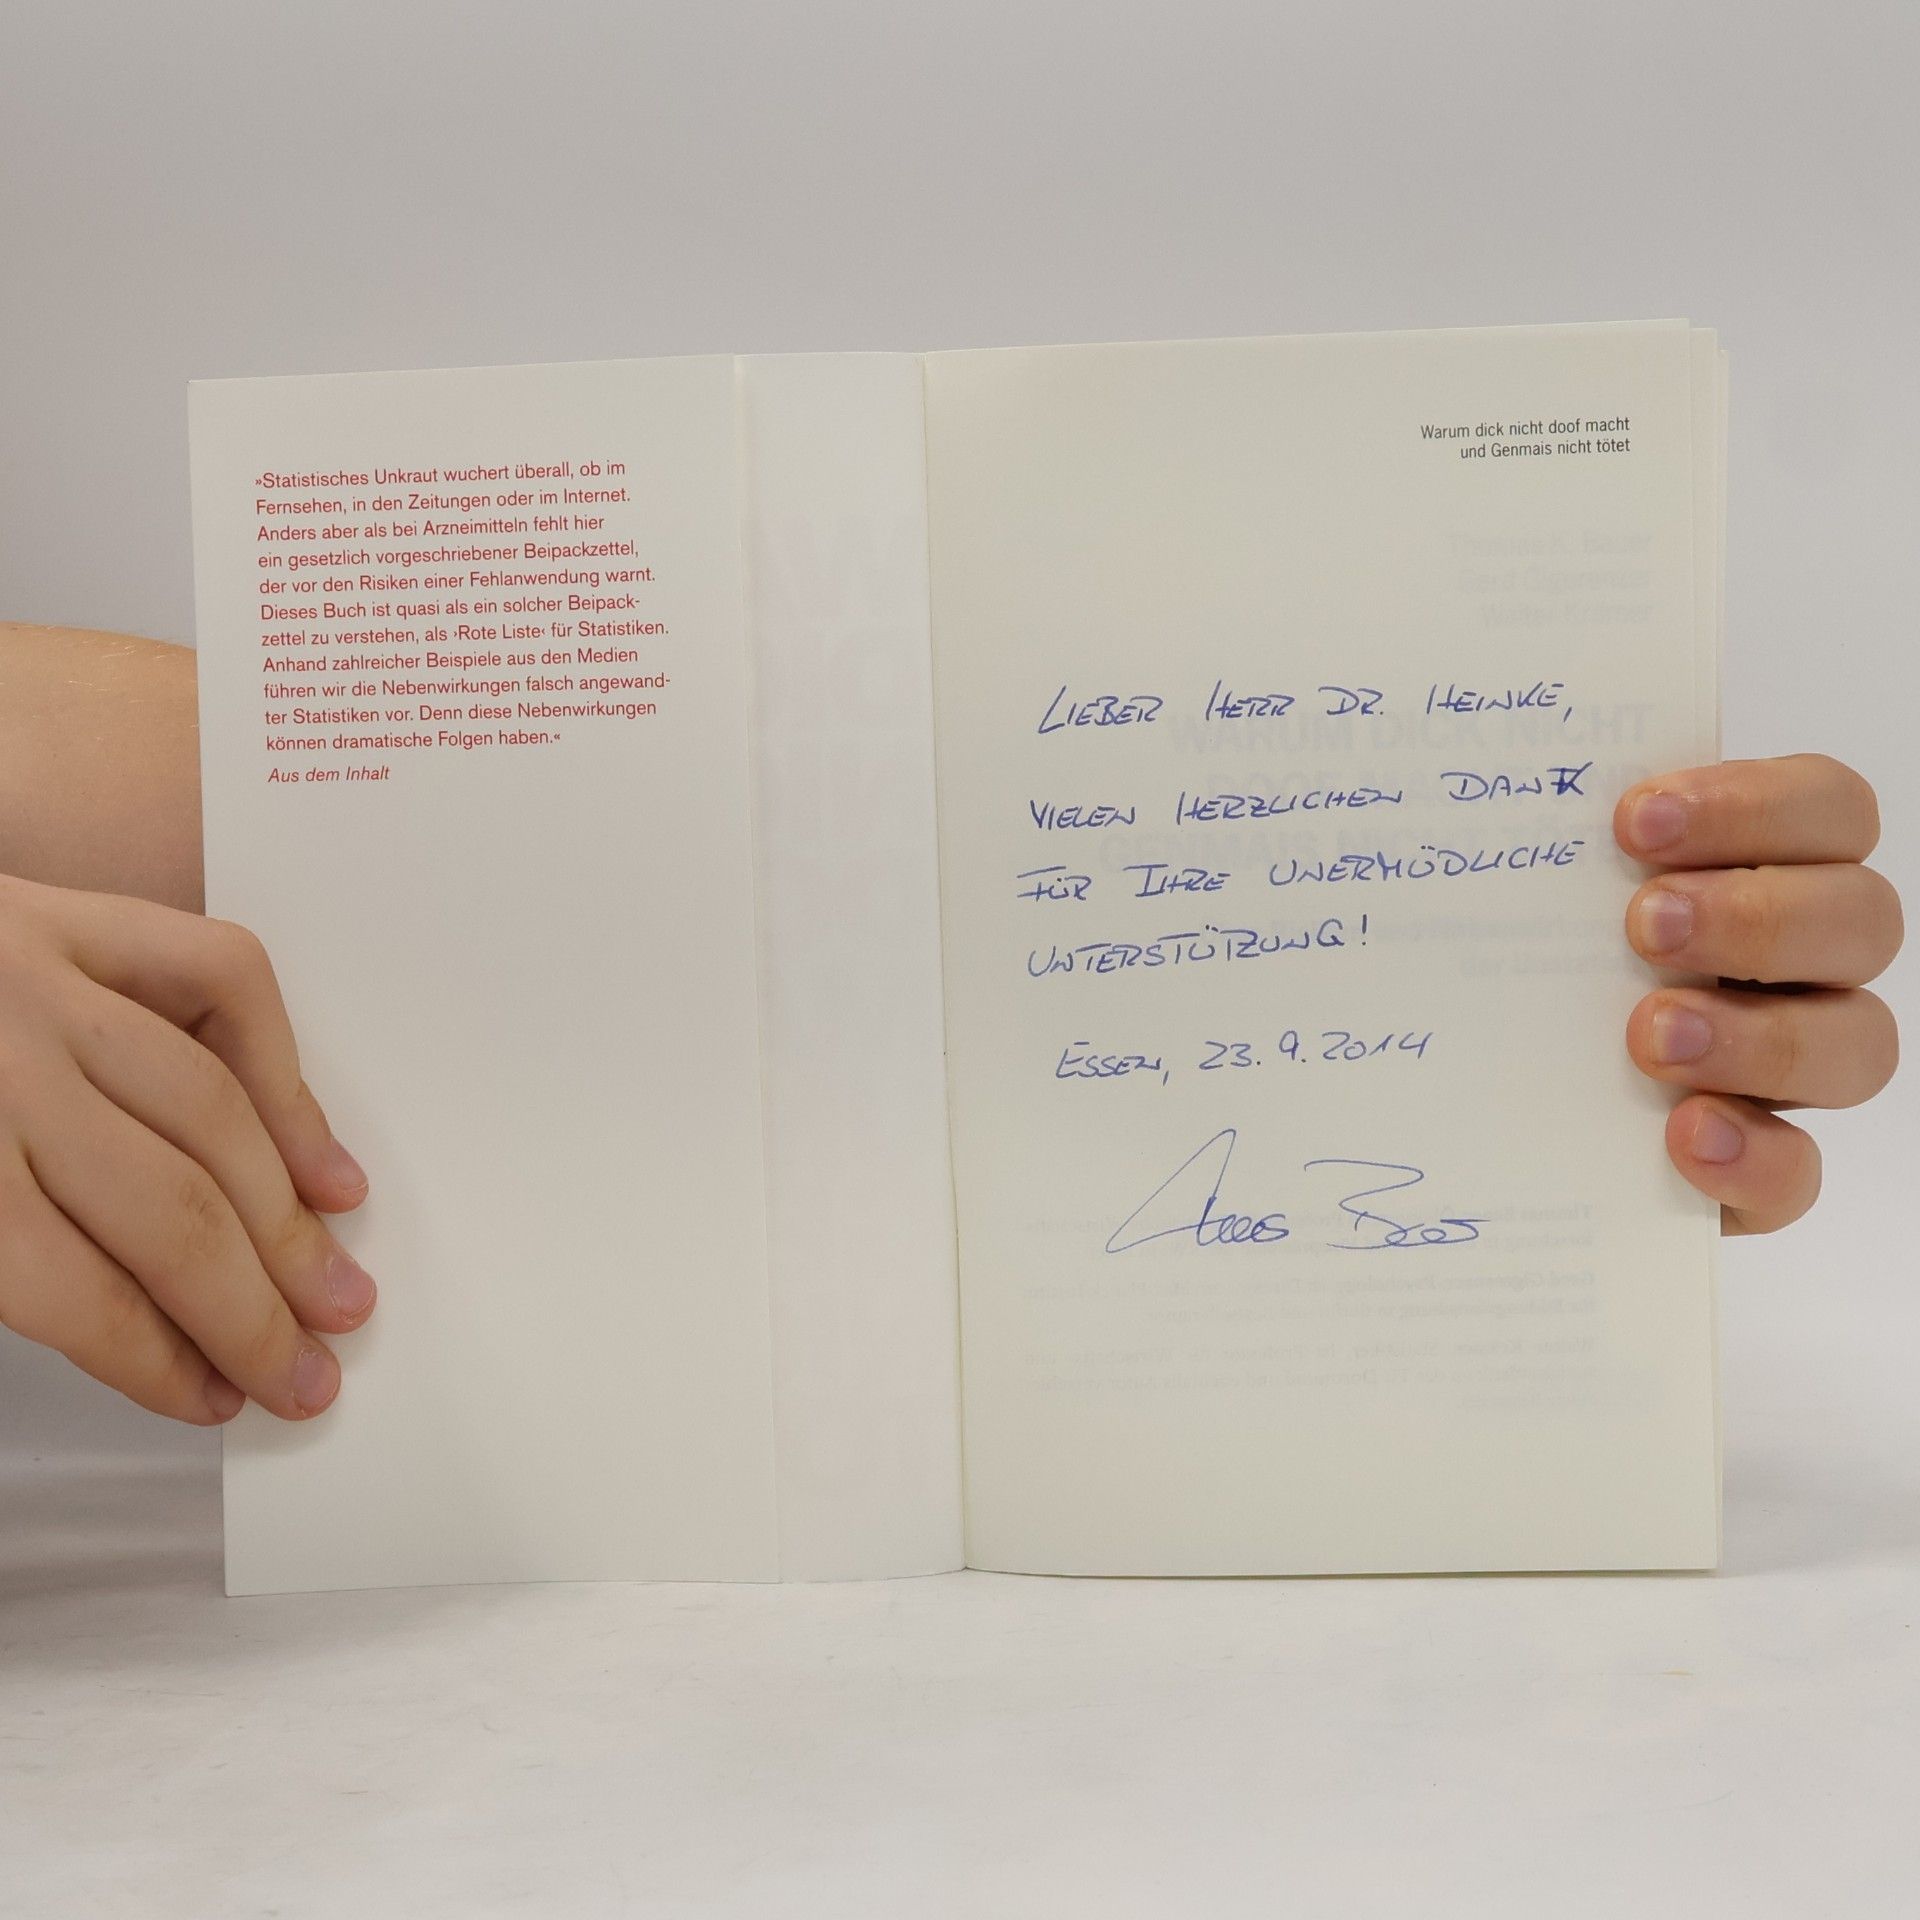 »Statistisches Unkraut wuchert überall, ob im
Fernsehen, in den Zeitungen oder im Internet.
Anders aber als bei Arzneimitteln fehlt hier
ein gesetzlich vorgeschriebener Beipackzettel,
der vor den Risiken einer Fehlanwendung warnt.
Dieses Buch ist quasi als ein solcher Beipack-
zettel zu verstehen, als ›Rote Liste‹ für Statistiken.
Anhand zahlreicher Beispiele aus den Medien
führen wir die Nebenwirkungen falsch angewand-
ter Statistiken vor. Denn diese Nebenwirkungen
können dramatische Folgen haben.«
Aus dem Inhalt
Warum dick nicht doof macht
und Genmais nicht tötet
LIEBER HERR DR. HEINKE,
VIELEN HERZLICHEN DANK
FÜR IHRE UNERMÜDLICHE
UNTERSTÜTZUNG!
ESSEN, 23.9.2014